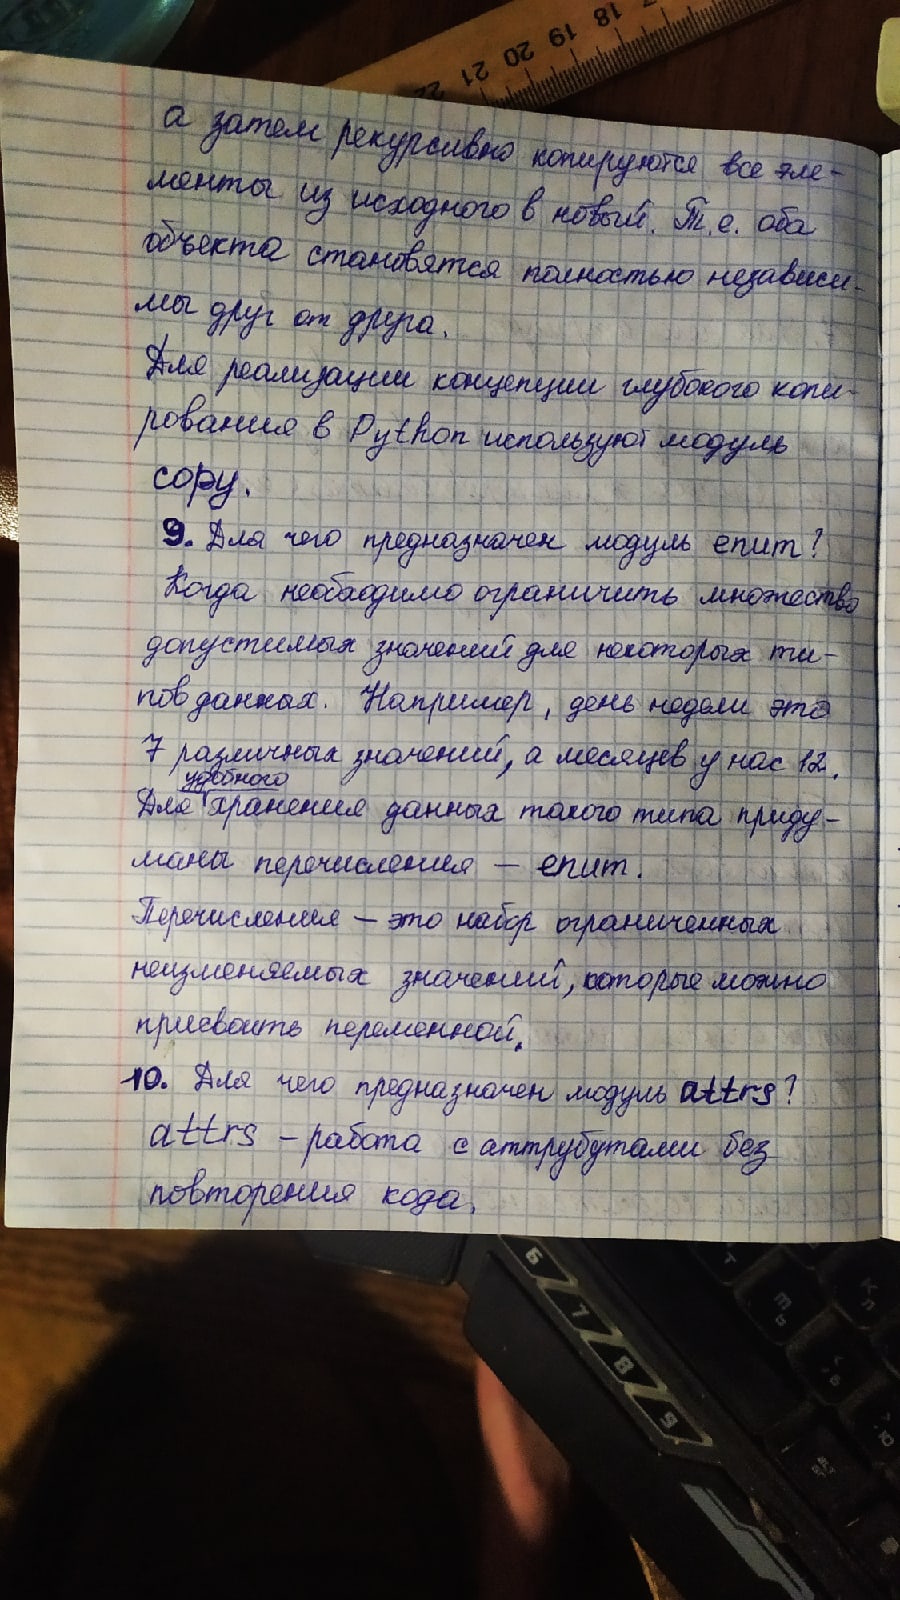 22 21 20 19 18 17
а затем рекурсивно копируются все эле-
менты из исходного в новый. Т.е. оба
объекта становятся полностью независи-
мы друг от друга.
Для реализации концепции глубокого копи-
рования в Python используют модуль
copy.
9. Для чего предназначен модуль enum?
Когда необходимо ограничить множество
допустимых значений для некоторых ти-
пов данных. Например, день недели это
7 различных значений, а месяцев у нас 12.
удобного
Для хранения данных такого типа приду-
маны перечисления – enum.
Перечисления – это набор ограниченных
неизменяемых значений, которые можно
присвоить переменной.
10. Для чего предназначен модуль attrs?
attrs – работа с аттрубутами без
повторения кода.
6
7
8
9